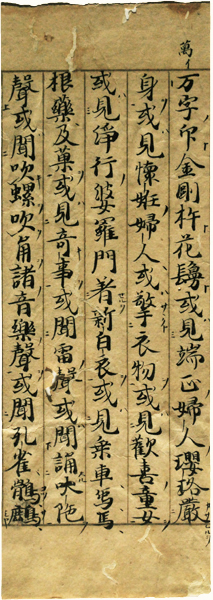 万字印金剛杵花鬘或見端正婦人瓔珞嚴
身或見懷妊婦人或擎衣物或見歡喜童女
或見淨行婆羅門著新白衣或見乘車馬馬
根藥及菓或見奇事或聞雷聲或聞誦吠陁
聲或聞吹螺吹角諸音樂聲或聞孔雀鶺鴒
萬イ